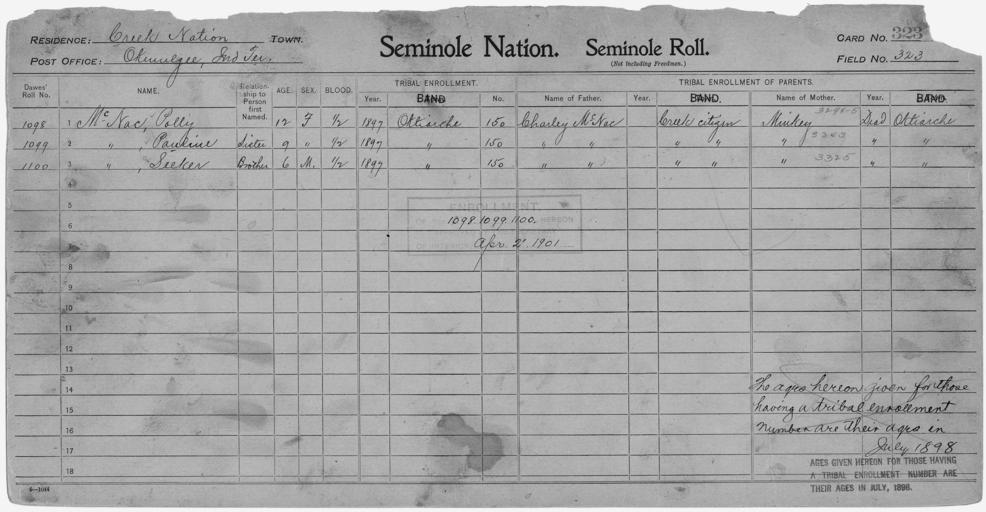 RESIDENCE: Creek Nation TOWN.
POST OFFICE: Okmulgee, Ind Ter.
Seminole Nation. Seminole Roll.
(Not Including Freedmen.)
CARD NO. 323
FIELD NO. 323
Dawes' Roll No. NAME. Relationship to Person first Named. AGE. SEX. BLOOD. TRIBAL ENROLLMENT. TRIBAL ENROLLMENT OF PARENTS.
Year. BAND No. Name of Father. Year. BAND. Name of Mother. Year. BAND.
3298-5
1098 1 McNac, Polly 12 F ½ 1897 Oktiarche 150 Charley McNac Creek citizen Minkey Dead Oktiarche
1099 2 " , Pauline Sister 9 " ½ 1897 " 150 " " " " " " "
1100 3 " , Seeker Brother 6 M. ½ 1897 " 150 " " " " " 3325 " "
4
5
ENROLLMENT
6 OF HEREON
1098.1099.1100.
7 Apr 2" 1901
8
9
10
11
12
13
14 The ages hereon given for those
15 having a tribal enrollment
16 number are their ages in
17 July 1898
AGES GIVEN HEREON FOR THOSE HAVING
18 A TRIBAL ENROLLMENT NUMBER ARE
6—1044 THEIR AGES IN JULY, 1898.